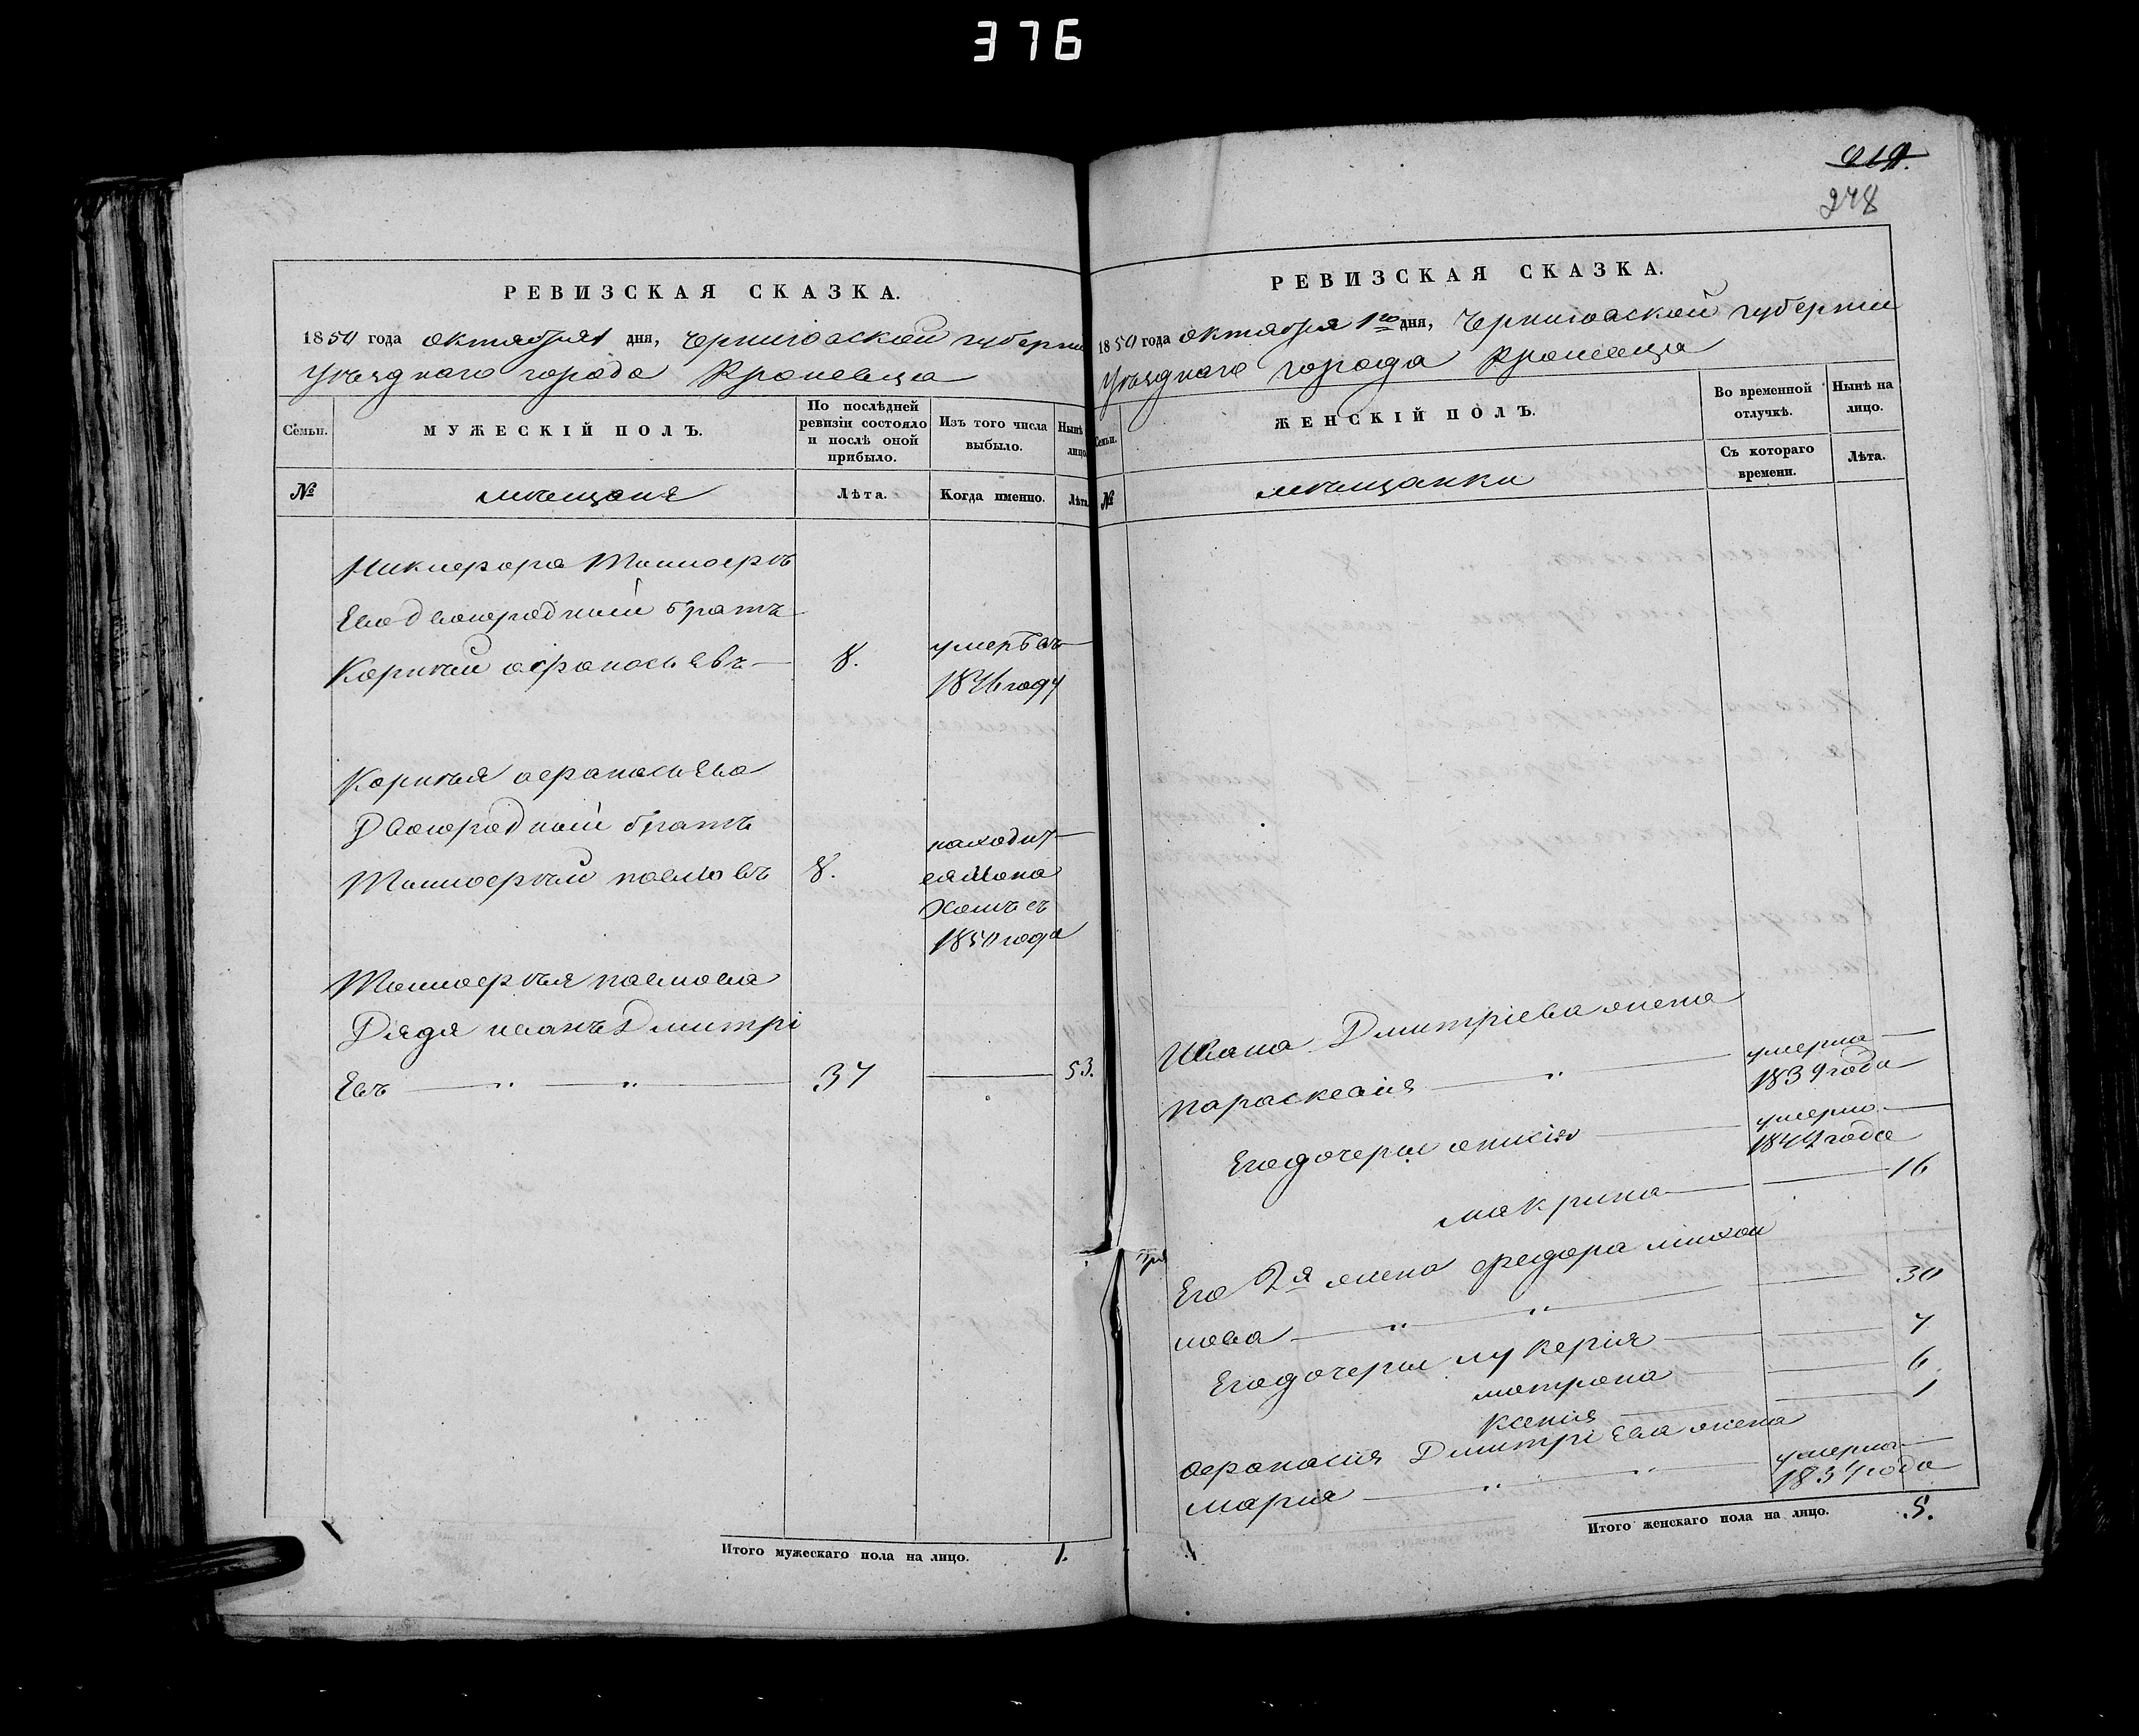 376
278
РЕВИЗСКАЯ СКАЗКА.
1850 года октября 1 дня, Черниговской губерни
Уѣзднаго города Кролевца
Семьи.
МУЖЕСКІЙ ПОЛЪ.
По послѣдней ревизіи состояло и послѣ оной прибыло.
Изъ того числа выбыло.
Нынѣ лицо
№
мѣщаня
Лѣта.
Когда именно.
Лѣта
Никифора
Его двоюродный братъ
Корнѣй Афанасьевъ
8.
умерь въ
1846 году
Корнѣя Афанасьева
Двоюродный братъ
Павловъ
8.
находит
ся Мона
хомъ съ
1850 года
Павлова
Дядя Иванъ Дмитрі
Евъ — „ — „ —
37
53.
Итого мужескаго пола на лицо.
1.
РЕВИЗСКАЯ СКАЗКА.
1850 года октября 1го дня, Черниговской губерніи
Уѣзднаго города Кролевца
Семьи.
ЖЕНСКІЙ ПОЛЪ.
Во временной отлучкѣ.
Нынѣ на лицо.
№
мѣщанки
Съ котораго времени.
Лѣта.
Ивана Дмитріева жена
Параскевія — „ —
умерла
1839 года
Его дочери
умерла
года
Макрина
16
Его 2я жена Федора Михай
лова — „ — „ —
30
Его дочери Лукерія
7
Матрона
6
Ксенія
1
Афанасія Дмитріева жена
Марія — „ — „ —
умерла
1837 года
Итого женскаго пола на лицо.
5.